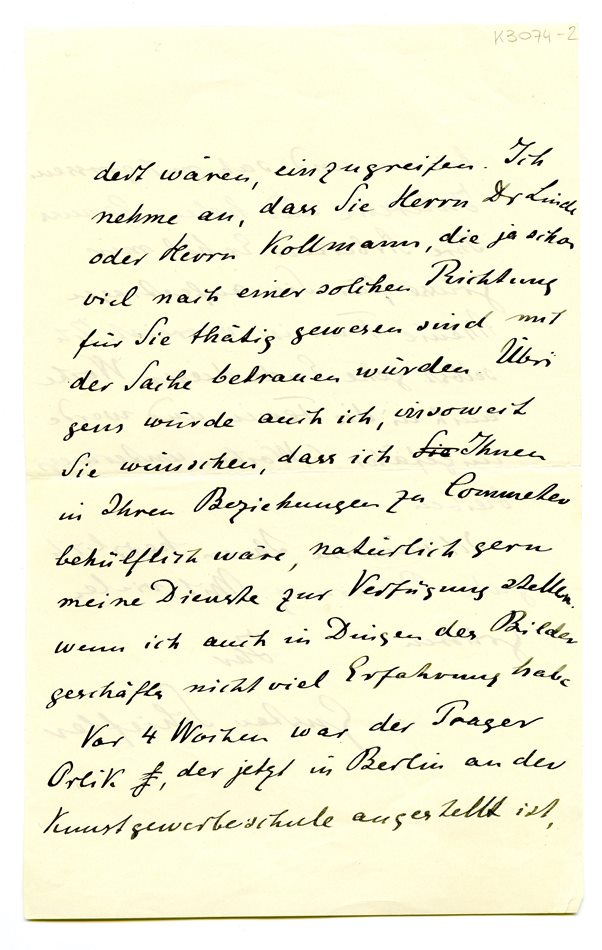 K3074-2
dert wären, einzugreifen. Ich
nehme an, dass Sie Herrn Dr Linde
oder Herrn Kollmann, die ja schon
viel nach einer solchen Richtung
für Sie thätig gewesen sind mit
der Sache betrauen würden. Übri
gens würde auch ich, insoweit
Sie wünschen, dass ich Sie Ihnen
in Ihren Beziehungen zu Commeter
behülflich wäre, natürlich gern
meine Dienste zur Verfügung stellen.
wenn ich auch in Dingen des Bilder
geschäfts nicht viel Erfahrung habe
Vor 4 Wochen war der Prager
Orlik, der jetzt in Berlin an der
Kunstgewerbeschule angestellt ist,